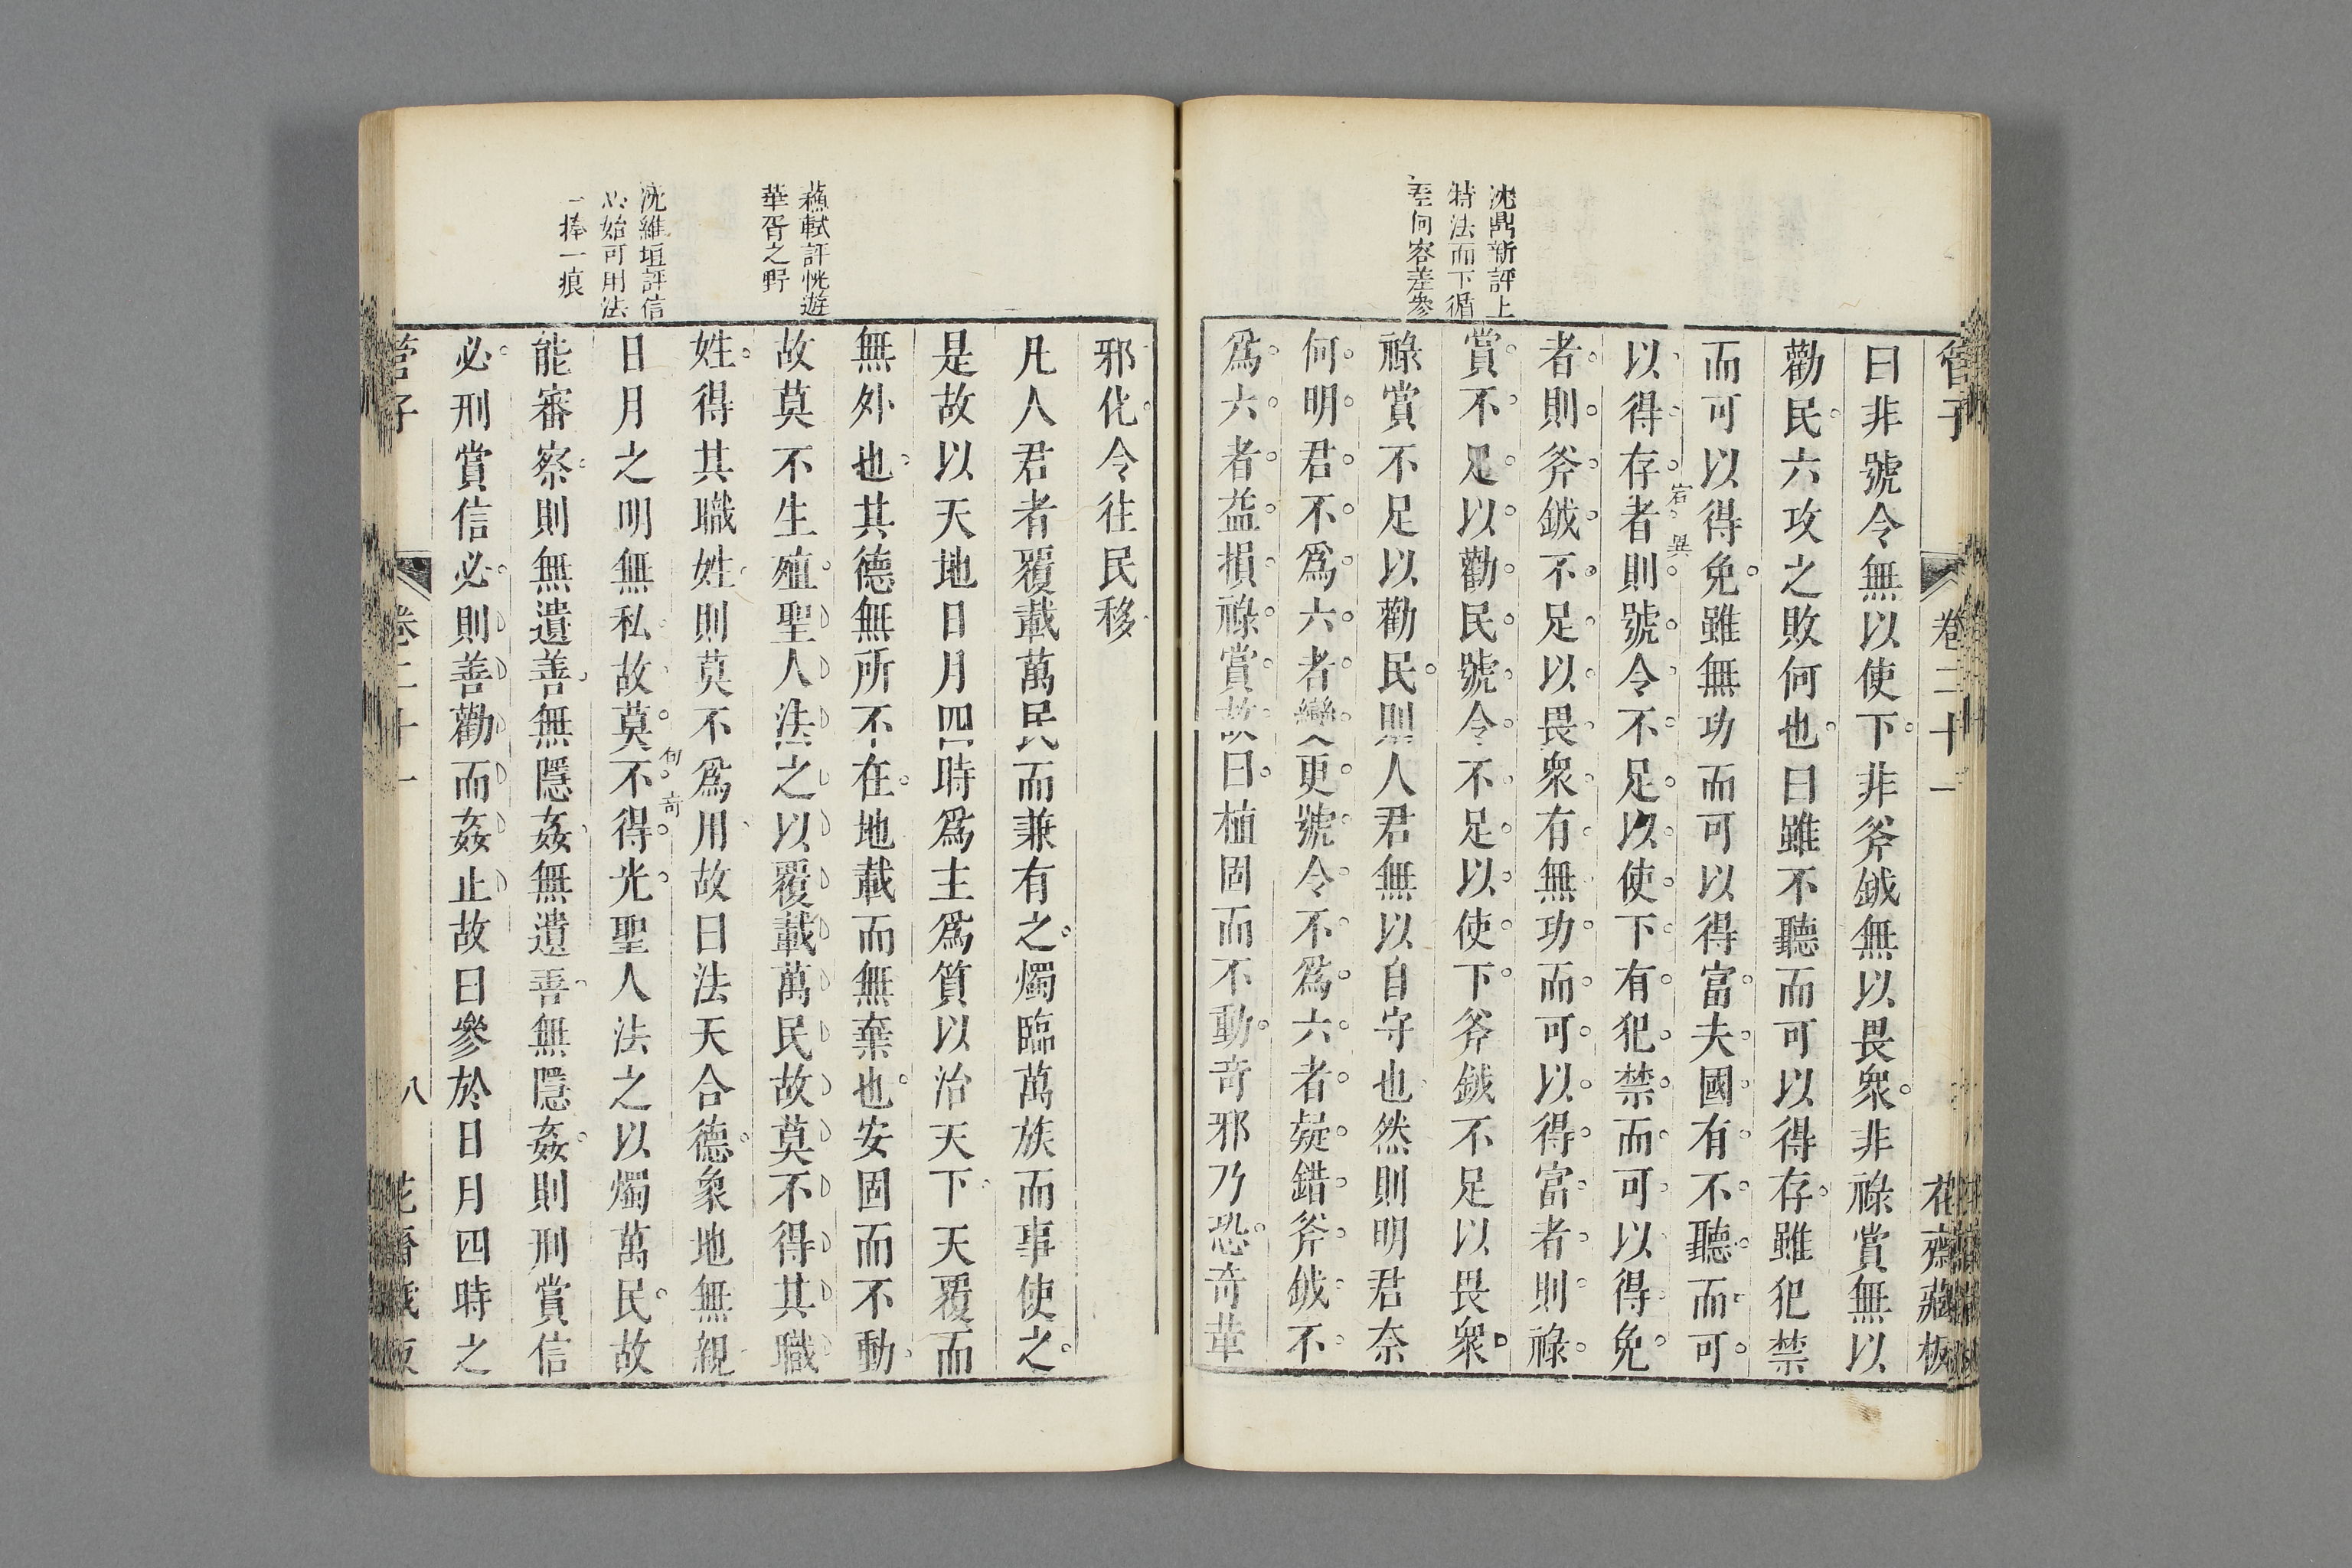 沈鼎新評上
特法而下循
至何容差參
管子
卷二十一
花齋藏板
曰非號令無以使下非斧鉞無以畏衆非祿賞無以
勸民六攻之敗何也曰雖不聽而可以得存雖犯禁
而可以得免雖無功而可以得富夫國有不聽而可
宕異
以得存者則號令不足以使下有犯禁而可以得免
者則斧鉞不足以畏衆有無功而可以得富者則祿
賞不足以勸民號令不足以使下斧鉞不足以畏衆
祿賞不足以勸民則人君無以自守也然則明君奈
何明君不爲六者變更號令不爲六者疑錯斧鉞不
爲六者益損祿賞故曰植固而不動奇邪乃恐奇革
蘇軾評恍遊
華胥之野
沈維垣評信
必始可用法
一捧一痕
邪化令往民移
凡人君者覆載萬民而兼有之燭臨萬族而事使之
是故以天地日月四時爲主爲質以治天下天覆而
無外也其德無所不在地載而無棄也安固而不動
故莫不生殖聖人法之以覆載萬民故莫不得其職
姓得其職姓則莫不爲用故曰法天合德象地無親
日月之明無私故莫不得光聖人法之以燭萬民故
句奇
能審察則無遺善無隱姦無遺善無隱姦則刑賞信
必刑賞信必則善勸而姦止故曰參於日月四時之
管子
卷二十一
八
花齋藏板